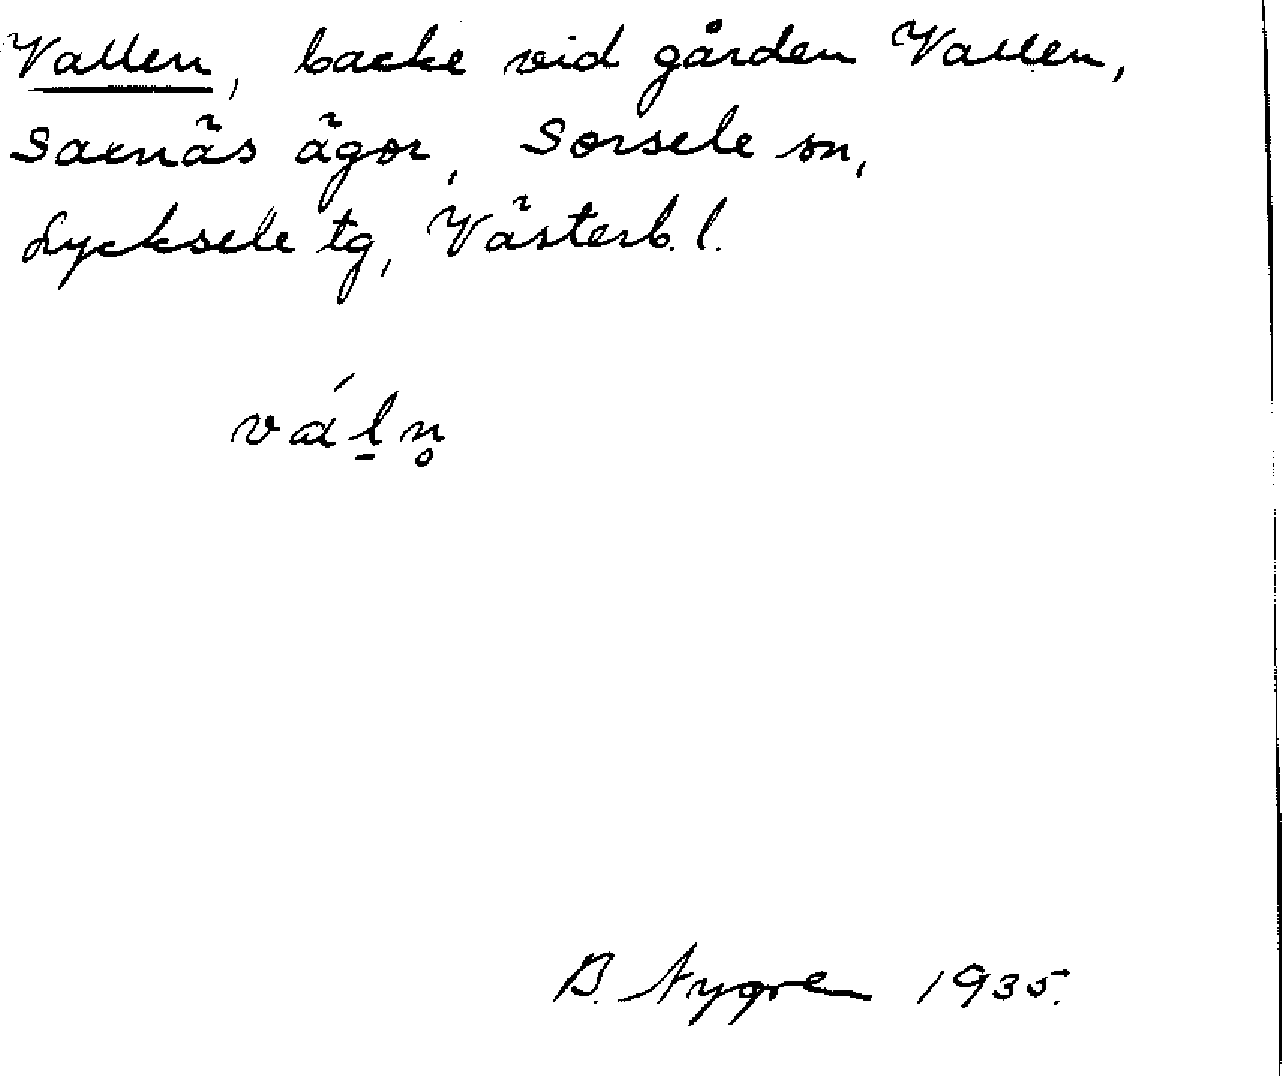 Vallen, backe vid gården Vallen,
Saxnäs ägor, Sorsele sn,
Lycksele tg, Västerb. l.
vál̠n̥
B. Nygren 1935.